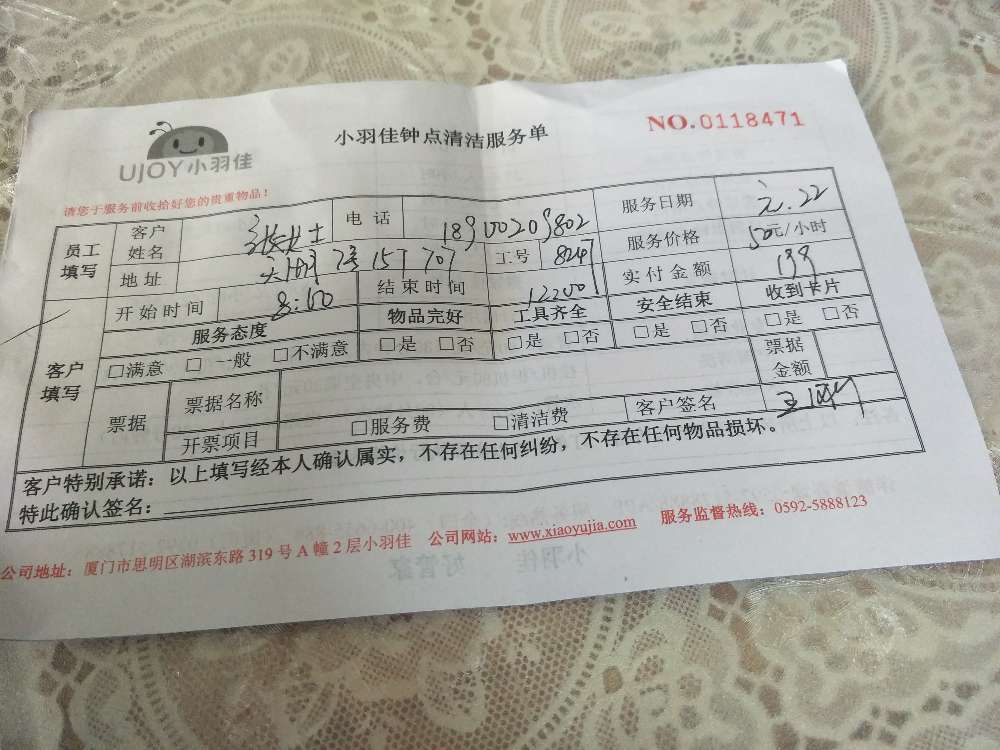 UJOY小羽佳
小羽佳钟点清洁服务单
NO.0118471
请您于服务前收拾好您的贵重物品！
员工填写 客户姓名 张女士 电话 18900209802 服务日期 22
地址 157 707 工号 8247 服务价格 50元/小时
开始时间 结束时间 12:00 实付金额 199
服务态度 物品完好 工具齐全 安全结束 收到卡片
客户填写 □满意 □一般 □不满意 □是 □否 □是 □否 □是 □否 □是 □否
票据 票据名称 票据金额
开票项目 □服务费 □清洁费 客户签名
客户特别承诺：以上填写经本人确认属实，不存在任何纠纷，不存在任何物品损坏。
特此确认签名：
公司地址：厦门市思明区湖滨东路319号A幢2层小羽佳 公司网站：www.xiaoyujia.com 服务监督热线：0592-5888123